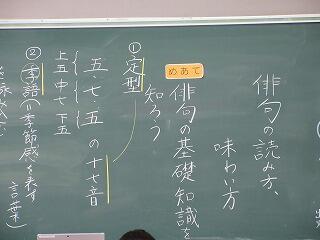 俳句の読み方、
味わい方
めあて
俳句の基礎知識を
知ろう
①定型
五・七・五の十七音
上五中七下五
②季語(=季節感を表す
言葉)